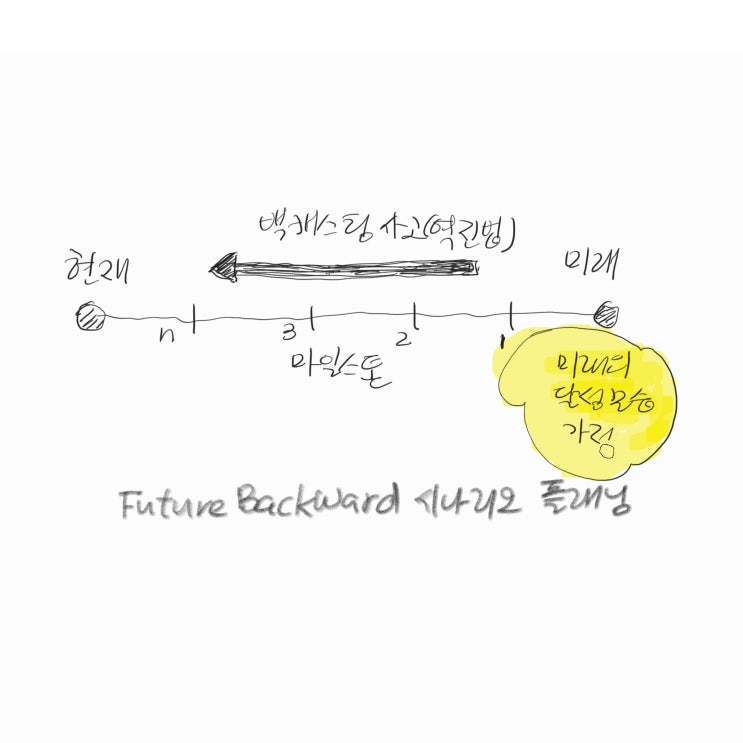 백캐스팅 사고(역진법)
현재
미래
n 3 2 1
마일스톤
미래의
달성모습
가정
Future Backward 시나리오 플래닝